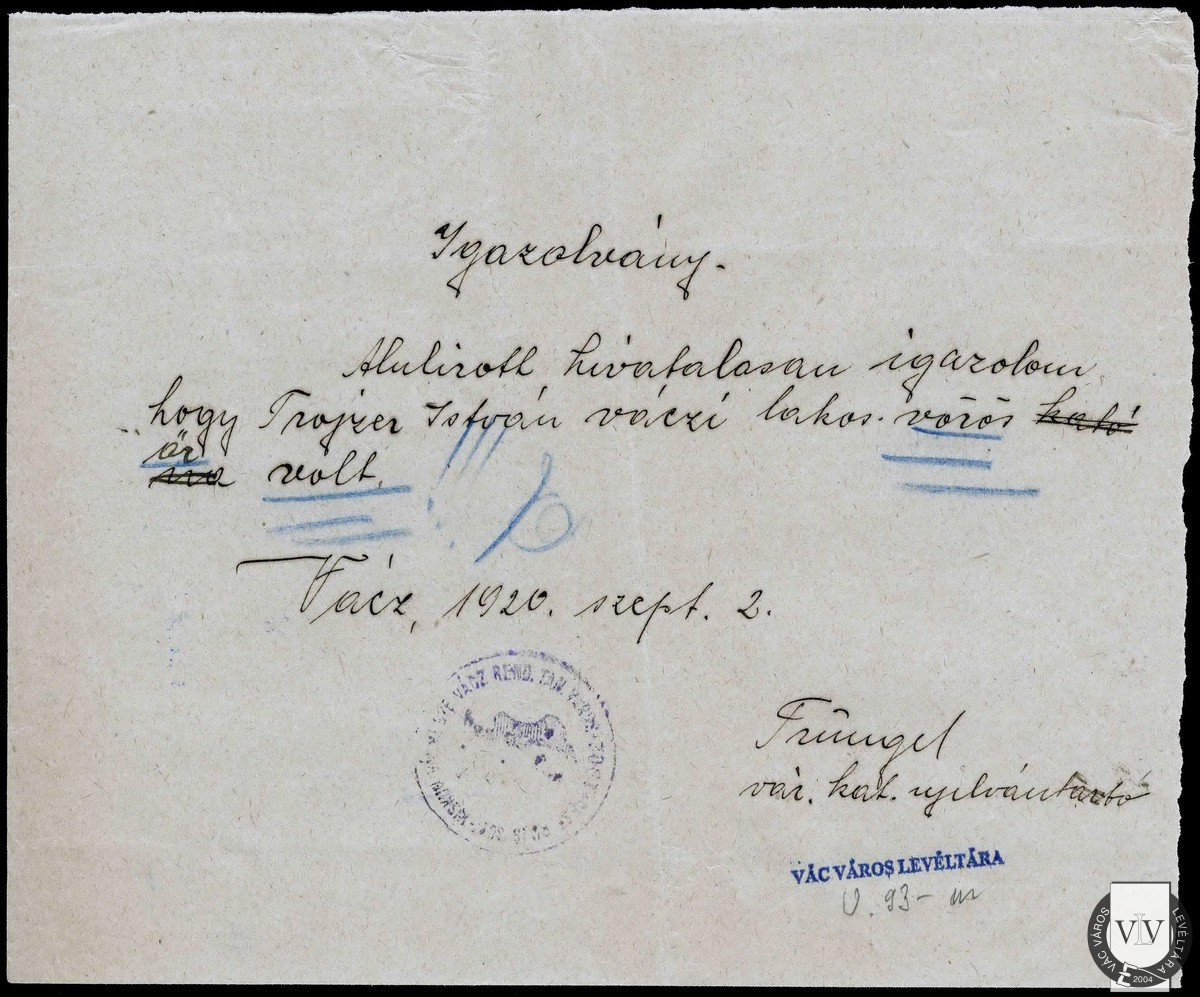 Igazolvány.
Alulirott hivatalosan igazolom
hogy Trojzer István váczi lakos vörös kató
őr
na volt.!!!
Vácz, 1920. szept. 2.
VÁCZ REND. TAN.
Trüngel
vár. kat. nyilvántartó
VÁC VÁROS LEVÉLTÁRA
V. 93-
VÁC VÁROS LEVÉLTÁRA
VLV
2004